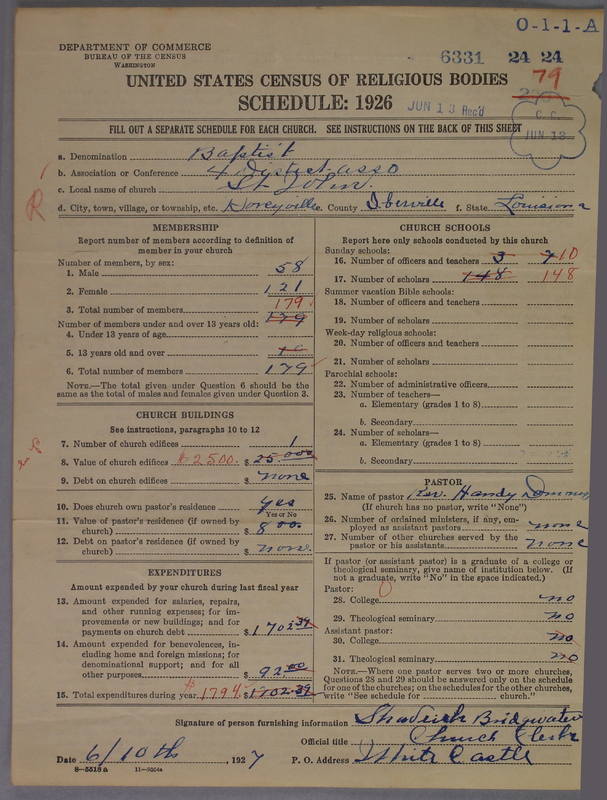 O-1-1-A
DEPARTMENT OF COMMERCE
BUREAU OF THE CENSUS
WASHINGTON
6331 24 24
UNITED STATES CENSUS OF RELIGIOUS BODIES
79
SCHEDULE: 1926
JUN 13 Rec'd
C. C.
JUN 13
FILL OUT A SEPARATE SCHEDULE FOR EACH CHURCH. SEE INSTRUCTIONS ON THE BACK OF THIS SHEET
R
a. Denomination Baptist
b. Association or Conference 4 District asso
c. Local name of church St John.
d. City, town, village, or township, etc. Dorcyville e. County Iberville f. State Louisiana
MEMBERSHIP
Report number of members according to definition of member in your church
Number of members, by sex:
1. Male 58
2. Female 121
179
3. Total number of members 179
Number of members under and over 13 years old:
4. Under 13 years of age
5. 13 years old and over
6. Total number of members 179
NOTE.—The total given under Question 6 should be the
same as the total of males and females given under Question 3.
CHURCH BUILDINGS
See instructions, paragraphs 10 to 12
7. Number of church edifices 1
8. Value of church edifices $2500. $ 25.000
9. Debt on church edifices $ none
10. Does church own pastor's residence? yes
Yes or No
11. Value of pastor's residence (if owned by
church) $ 800
12. Debt on pastor's residence (if owned by
church) $ none.
EXPENDITURES
Amount expended by your church during last fiscal year
13. Amount expended for salaries, repairs,
and other running expenses; for im-
provements or new buildings; and for
payments on church debt $ 1702.39
14. Amount expended for benevolences, in-
cluding home and foreign missions; for
denominational support; and for all
other purposes $ 92.00
15. Total expenditures during year $1794. $ 1702.39
CHURCH SCHOOLS
Report here only schools conducted by this church
Sunday schools:
16. Number of officers and teachers 3 7 10
17. Number of scholars 148 148
Summer vacation Bible schools:
18. Number of officers and teachers
19. Number of scholars
Week-day religious schools:
20. Number of officers and teachers
21. Number of scholars
Parochial schools:
22. Number of administrative officers
23. Number of teachers—
a. Elementary (grades 1 to 8)
b. Secondary
24. Number of scholars—
a. Elementary (grades 1 to 8)
b. Secondary
PASTOR
25. Name of pastor Rev. Handy
(If church has no pastor, write "None")
26. Number of ordained ministers, if any, em-
ployed as assistant pastors none
27. Number of other churches served by the
pastor or his assistants none
If pastor (or assistant pastor) is a graduate of a college or
theological seminary, give name of institution below. (If
not a graduate, write "No" in the space indicated.)
Pastor:
28. College no
29. Theological seminary no
Assistant pastor:
30. College no
31. Theological seminary no
NOTE.—Where one pastor serves two or more churches,
Questions 28 and 29 should be answered only on the schedule
for one of the churches; on the schedules for the other churches,
write "See schedule for church."
Signature of person furnishing information Shadrick Bridgwater
Official title Church Clerk
Date 6/10th, 1927 P. O. Address White Castle
8—5518a 11—9554a